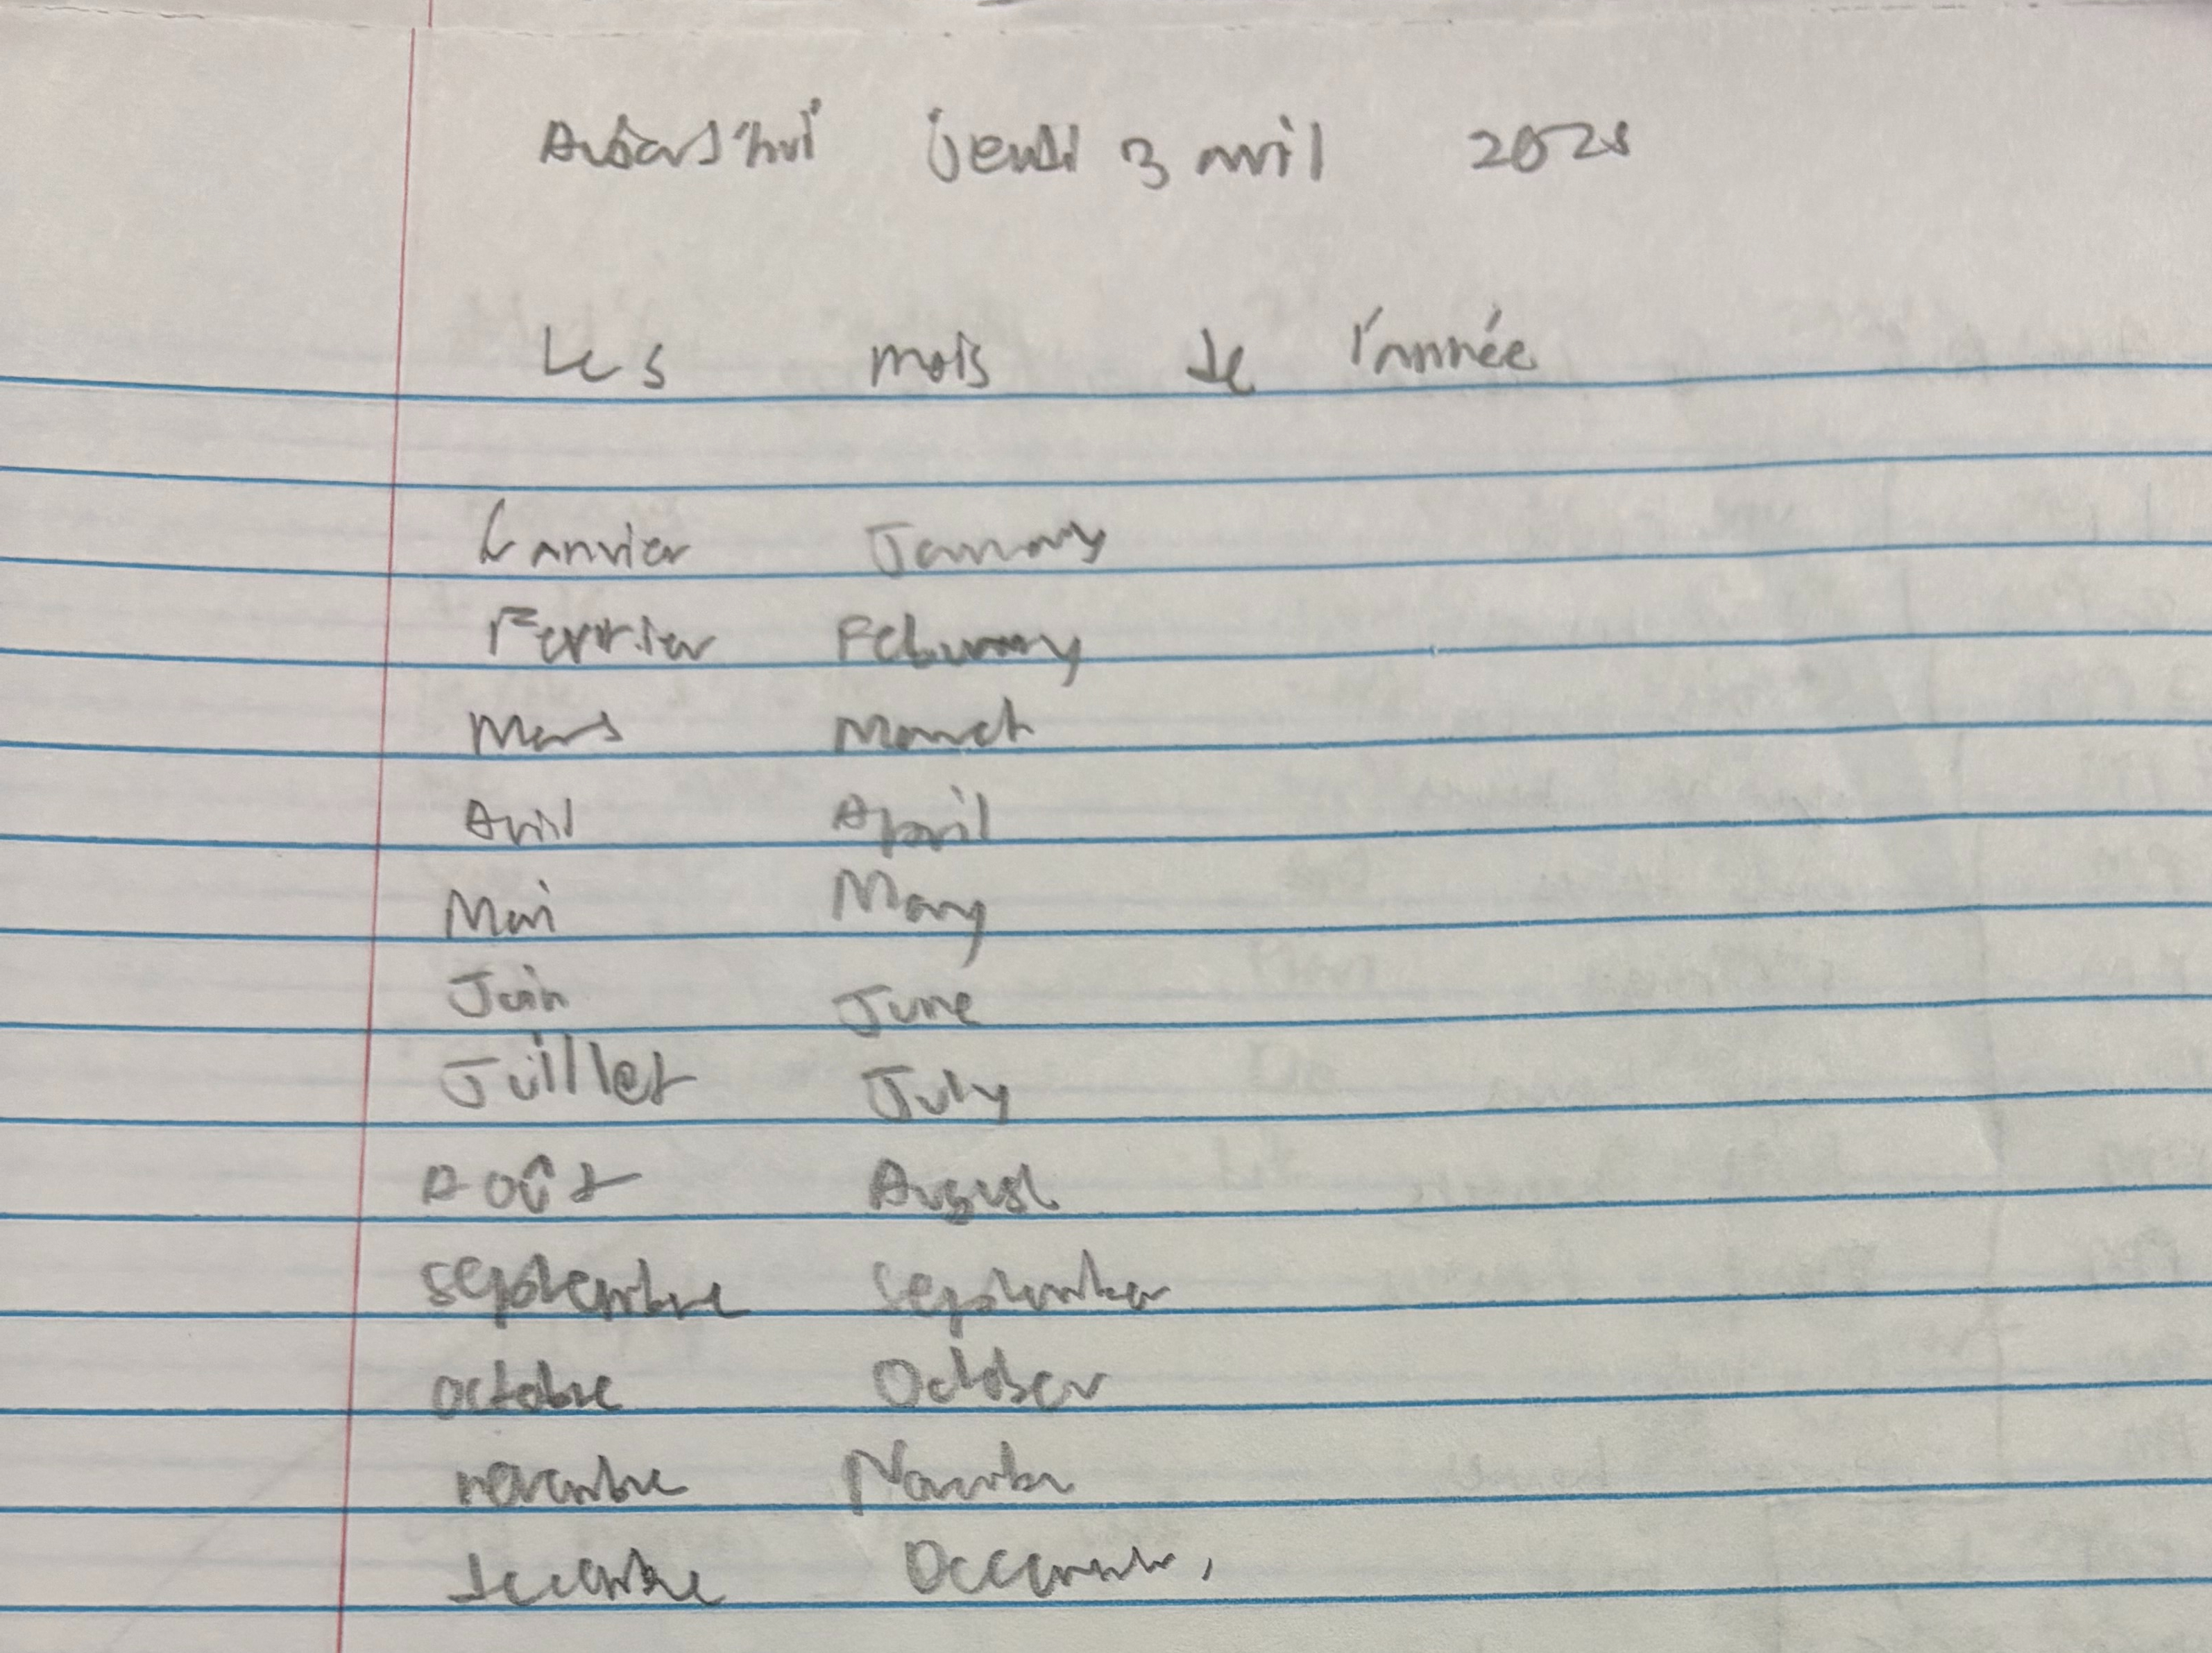 Aujourd'hui jeudi 3 avril 2025
Les mois de l'année
Janvier January
Fevrier Februrary
Mars March
Avril April
Mai May
Juin June
Juillet July
Août August
septembre September
octobre October
novembre November
decembre December,